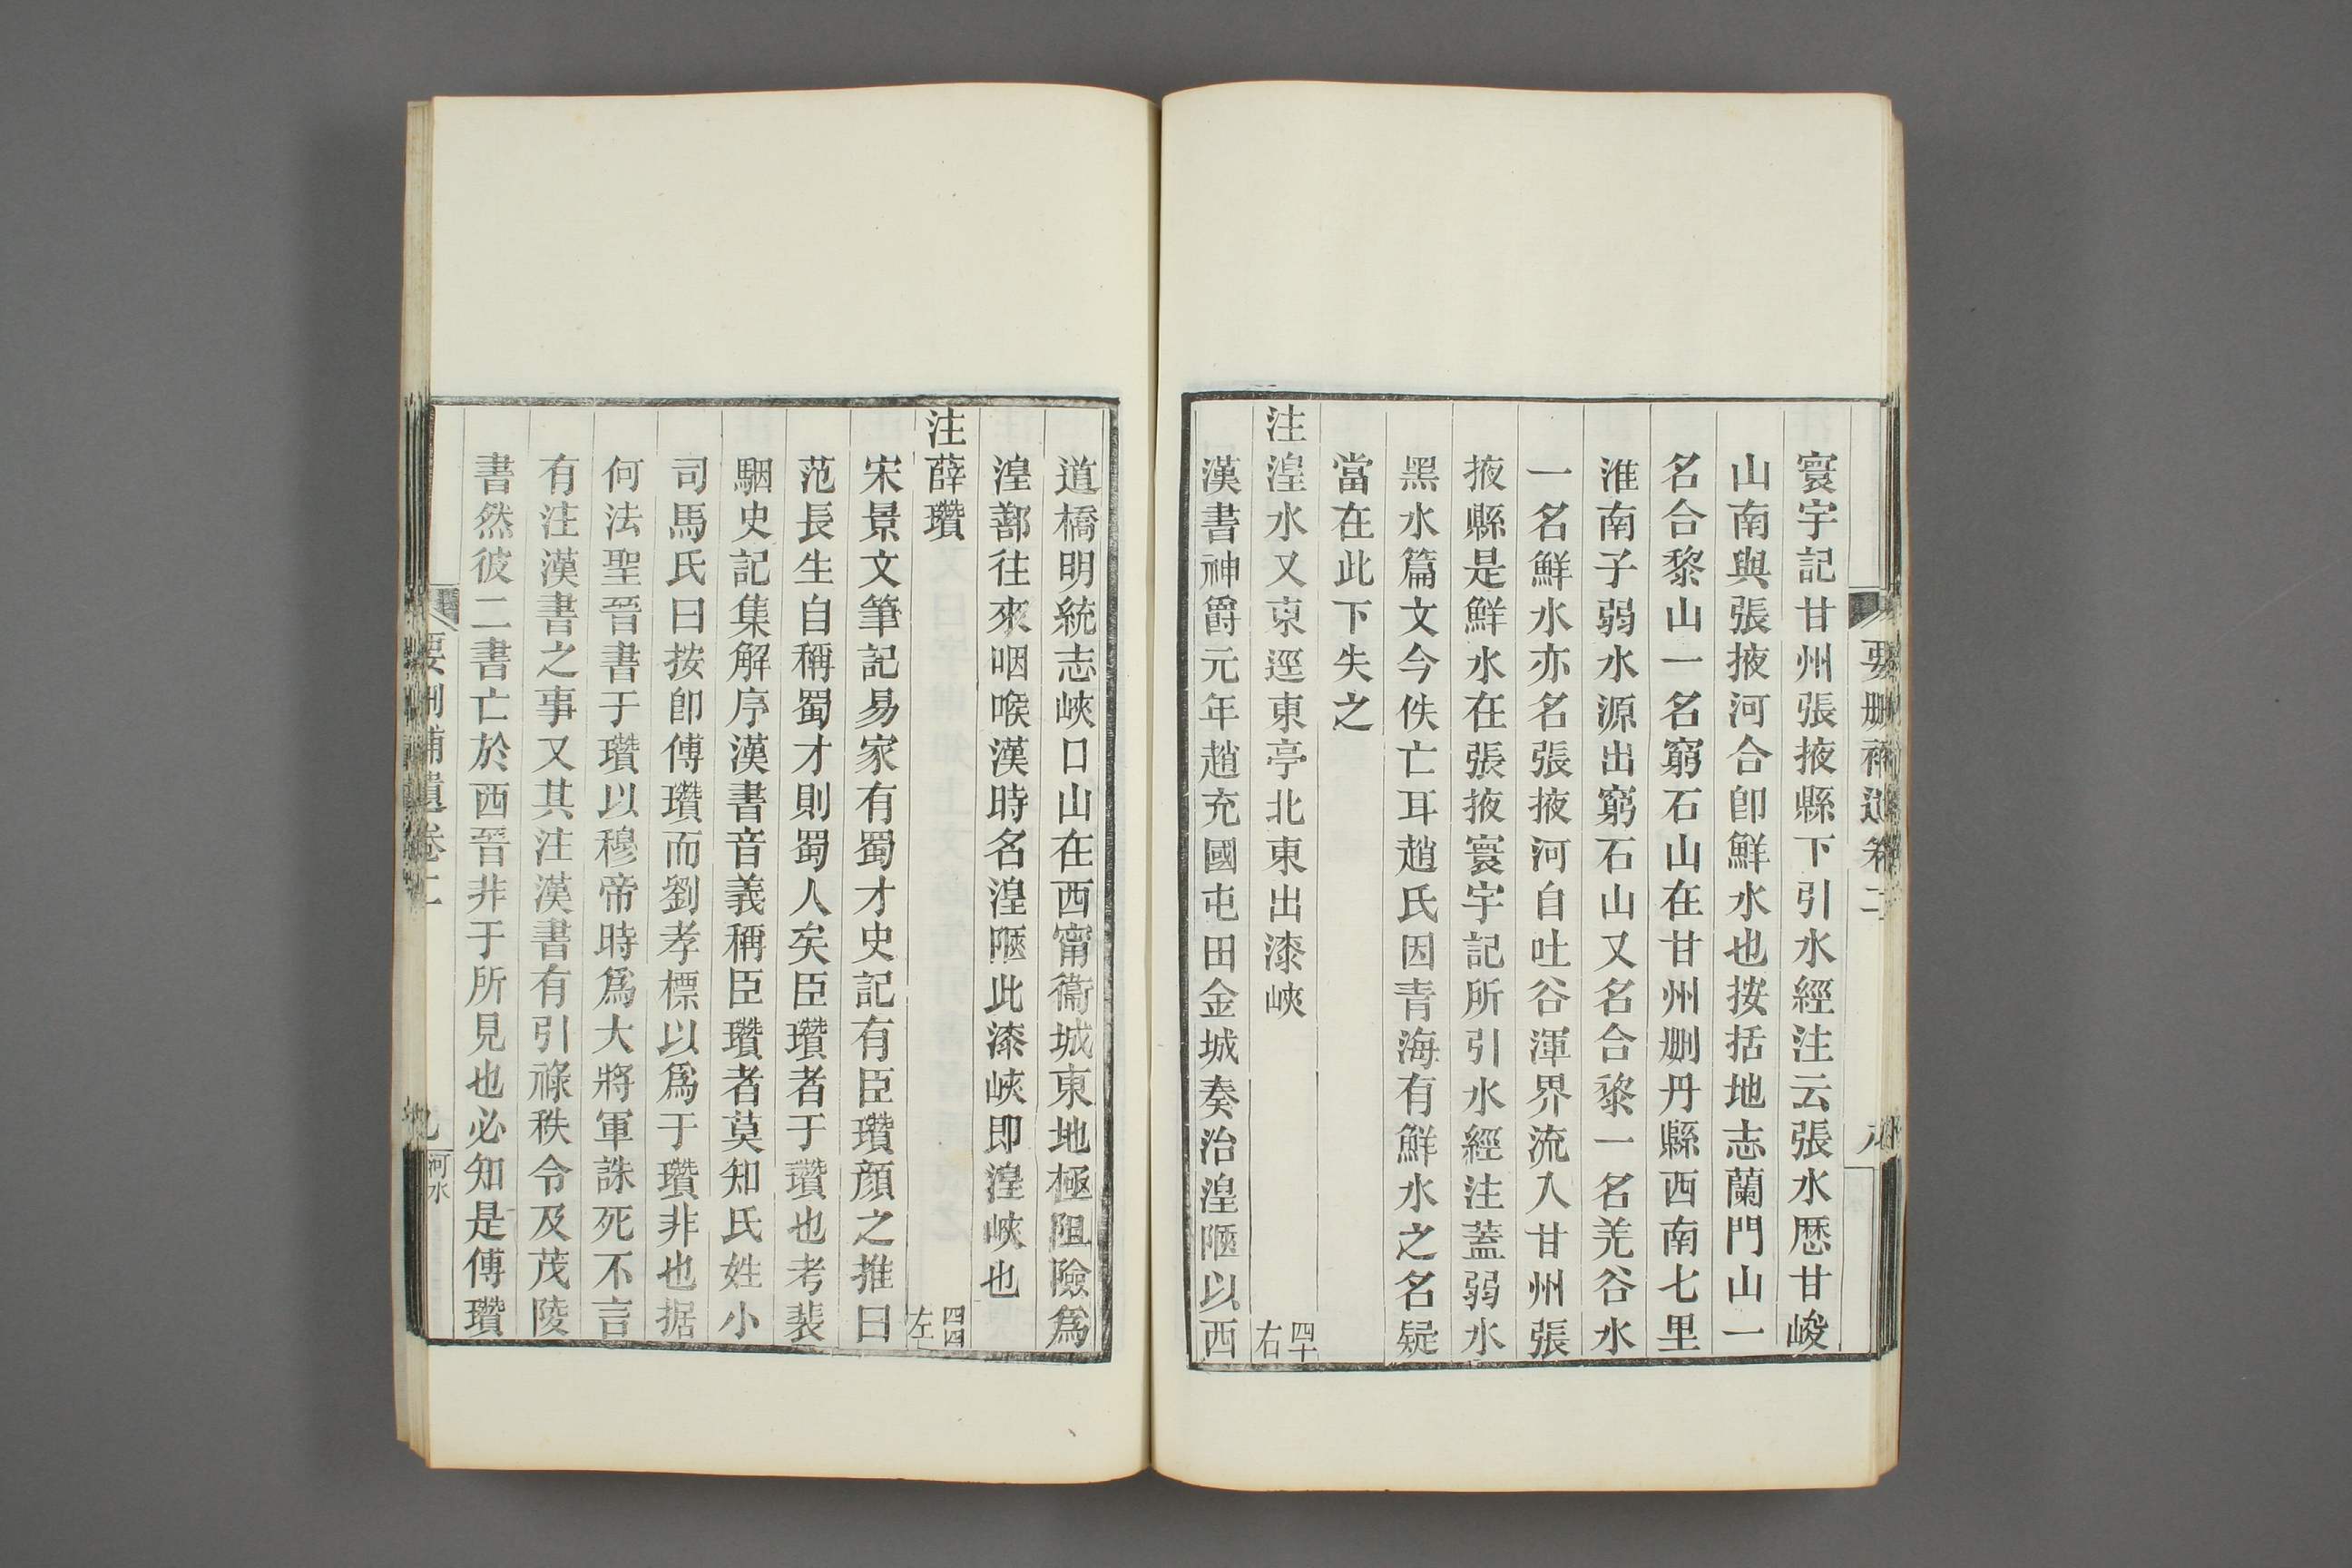 要刪補遺卷二
寰宇記甘州張掖縣下引水經注云張水厯甘峻
山南與張掖河合卽鮮水也按括地志蘭門山一
名合黎山一名窮石山在甘州刪丹縣西南七里
淮南子弱水源出窮石山又名合黎一名羌谷水
一名鮮水亦名張掖河自吐谷渾界流入甘州張
掖縣是鮮水在張掖寰宇記所引水經注蓋弱水
黑水篇文今佚亡耳趙氏因青海有鮮水之名疑
當在此下失之
注湟水又東逕東亭北東出漆峽 四十右
漢書神爵元年趙充國屯田金城奏治湟陿以西
道橋明統志峽口山在西甯衞城東地極阻險爲
湟鄯往來咽喉漢時名湟陿此漆峽卽湟峽也
注薛瓚 四四左
宋景文筆記易家有蜀才史記有臣瓚顏之推曰
范長生自稱蜀才則蜀人矣臣瓚者于瓚也考裴
駰史記集解序漢書音義稱臣瓚者莫知氏姓小
司馬氏曰按卽傅瓚而劉孝標以爲于瓚非也据
何法聖晉書于瓚以穆帝時爲大將軍誅死不言
有注漢書之事又其注漢書有引祿秩令及茂陵
書然彼二書亡於西晉非于所見也必知是傅瓚
要刪補遺卷二
九
河水